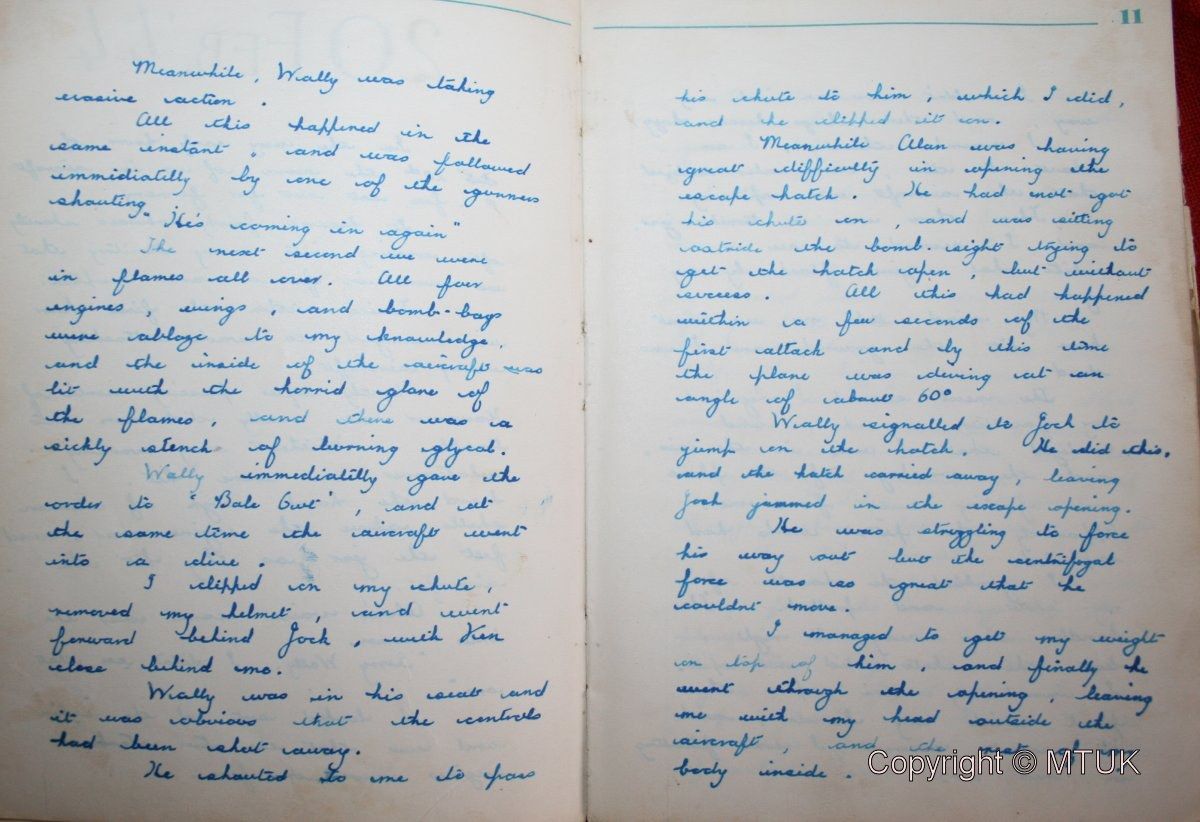 Meanwhile, Wally was taking
evasive action.
All this happened in the
same instant, and was followed
immediatlly by one of the gunners
shouting "He's coming in again"
The next second we were
in flames all over. All four
engines, wings, and bomb-bays
were ablaze to my knowledge,
and the inside of the aircraft was
lit with the horrid glare of
the flames, and there was a
sickly stench of burning glycol.
Wally immediatlly gave the
order to "Bale Out", and at
the same time the aircraft went
into a dive.
I clipped on my chute,
removed my helmet, and went
forward behind Jock, with Ken
close behind me.
Wally was in his seat and
it was obvious that the controls
had been shot away.
He shouted to me to pass
11
his chute to him, which I did,
and he clipped it on.
Meanwhile Alan was having
great difficulty in opening the
escape hatch. He had not got
his chute on, and was sitting
astride the bomb-sight trying to
get the hatch open, but without
success. All this had happened
within a few seconds of the
first attack and by this time
the plane was diving at an
angle of about 60°
Wally signalled to Jock to
jump on the hatch. He did this,
and the hatch carried away, leaving
Jock jammed in the escape opening.
He was struggling to force
his way out but the centrifogal
force was so great that he
couldnt move.
I managed to get my weight
on top of him and finally he
went through the opening, leaving
me with my head outside the
aircraft, and the rest of my
body inside.
Copyright © MTUK